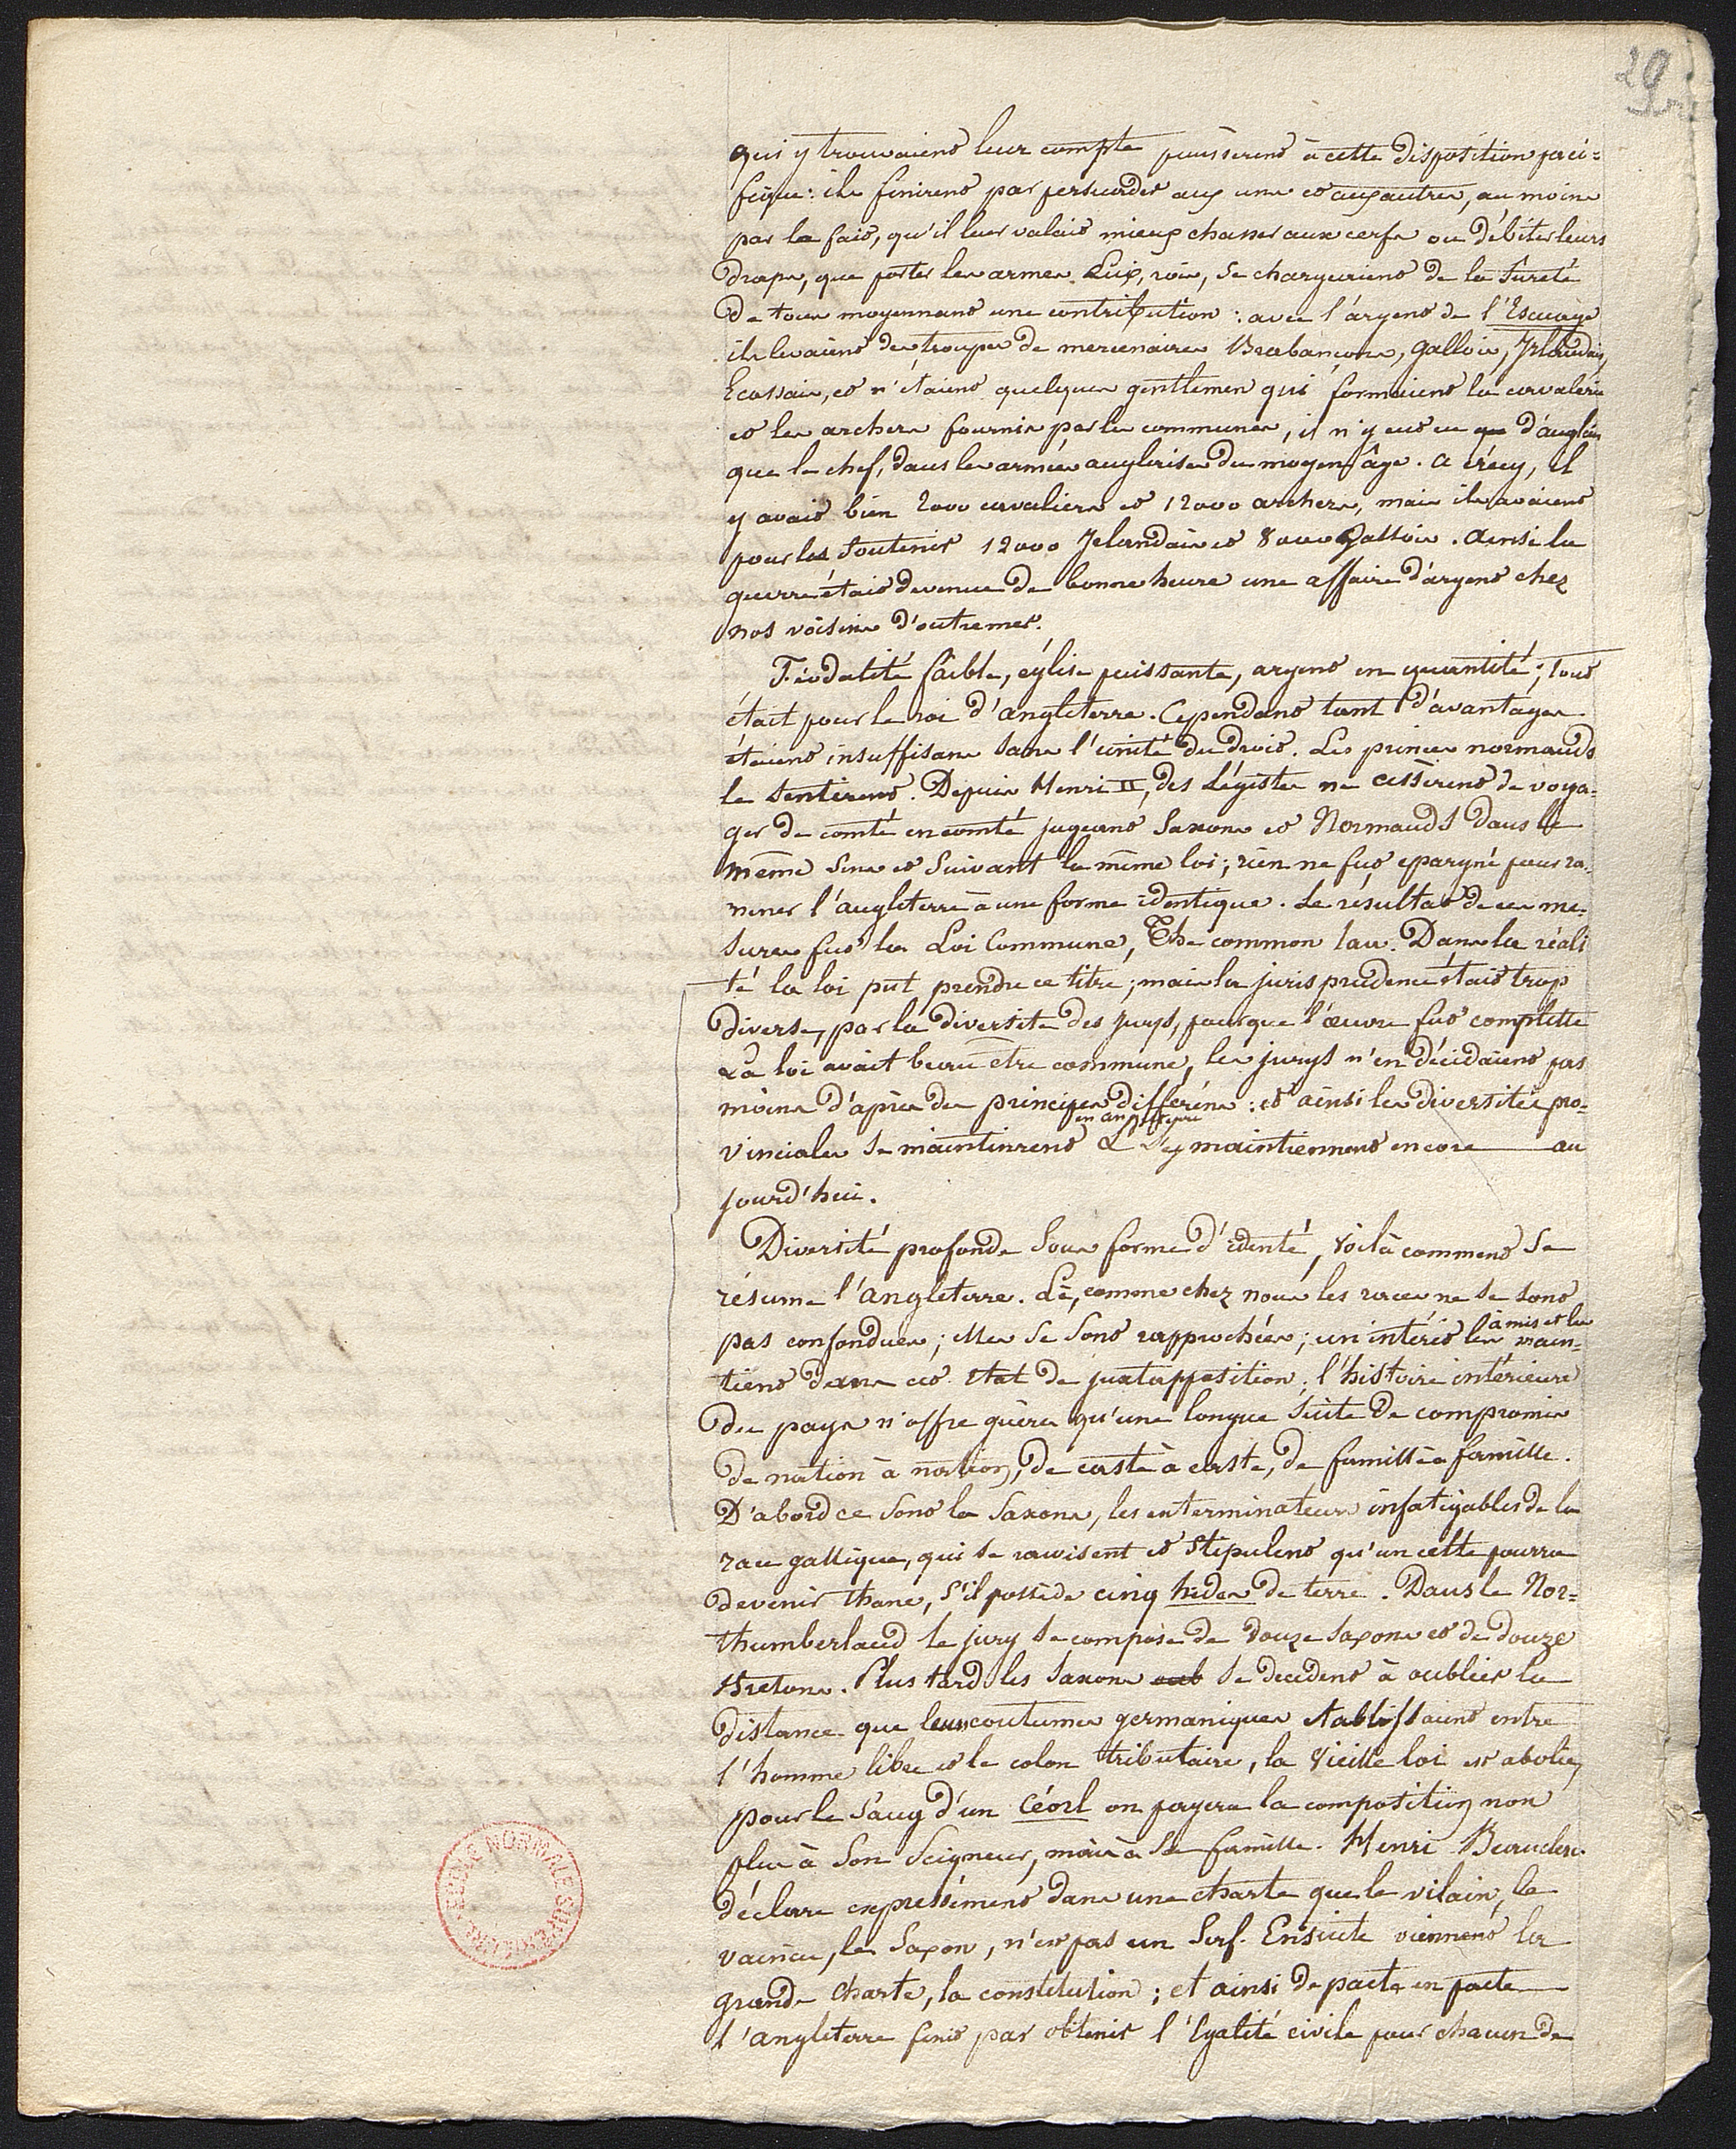 29
qui y trouvaient leur compte poussèrent à cette disposition paci=
fique: ils finirent par persuader aux uns et aux autres, au moins
par le fait, qu'il leur valait mieux chasser aux cerfs ou débiter leurs
draps, que porter les armes. Eux, rois, se chargeaient de la sureté
de tous moyennant une contribution : avec l'argent de l'Escuage
ils levaient des troupes de mercenaires Brabançons, Gallois, Irlandais,
Ecossais, et n'étaient quelques gentlemen qui formaient la cavalerie
et les archers fournis par les communes, il n'y eut eu que d'anglais
que le chef, dans les armées anglaises du moyen âge. A crécy, il
y avait bien 2000 cavaliers et 12000 archers, mais ils avaient
pour les soutenir 12000 Irlandais et 8000 Gallois. Ainsi la
guerre était devenue de bonne heure une affaire d'argent chez
nos voisins d'outremer.
Féodalité faible, église puissante, argent en quantité; tout
était pour le roi d'angleterre. Cependant tant d'avantages
étaient insuffisans sans l'unité du droit. Les princes normands
le sentirent. Depuis Henri II, des Légistes ne cessèrent de voya=
ger de comté en comté jugeant Saxons et Normands dans le
même sens et suivant la même loi; rien ne fut epargné pour ra=
mener l'angleterre à une forme identique. Le résultat de ces me=
sures fut la Loi Commune, The common law. Dans la réali
té la loi put prendre ce titre; mais la jurisprudence était trop
diverse, par la diversité des jurys, pour que l'œuvre fut complette
La loi avait beau être commune, les jurys n'en décidaient pas
moins d'après des principes différens : et ainsi les diversités pro=
en angleterre
vinciales se maintinrent & s'y maintiennent encore au
jourd'hui.
Diversité profonde sous forme d'identé, voilà comment se
résume l'angleterre. Là, comme chez nous les races ne se sont
a mis et les
pas confondues; elles se sont rapprochées; un intérêt les main=
tient dans cet état de juxtapposition; l'histoire intérieure
du pays n'offre guères qu'une longue suite de compromis
de nation à nation, de caste à caste, de famille à famille.
D'abord ce sont les Saxons, les exterminateurs infatigables de la
race gallique, qui se ravisent et stipulent qu'un celte pourra
devenir thane, s'il possède cinq hides de terre. Dans le Nor=
thumberland le jury se compose de douze saxons et de douze
Bretons. Plus tard les Saxons oub se decident à oublier la
distance que leurs coutumes germaniques etablissaient entre
l'homme libre et le colon tributaire, la vieille loi est abolie,
pour le sang d'un céorl on payera la composition non
plus à son seigneur, mais à sa famille. Henri Beauclerc
déclare expressément dans une charte que le vilain, le
vaincu, le Saxon, n'est pas un serf. Ensuite viennent la
grande charte, la constitution; et ainsi de pacte en pacte
l'angleterre finit par obtenir l'Egalité civile pour chacun de
ÉCOLE NORMALE SUPÉRIEURE